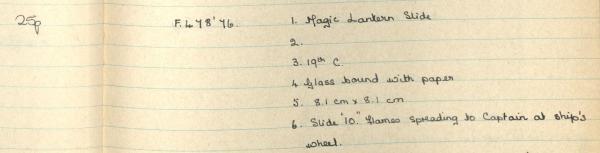 25p F.478'76. 1. Magic Lantern Slide
2.
3. 19th C.
4 Glass bound with paper
5. 8.1 cm x 8.1 cm
6. Slide "10." Flames spreading to Captain at ship's
wheel.